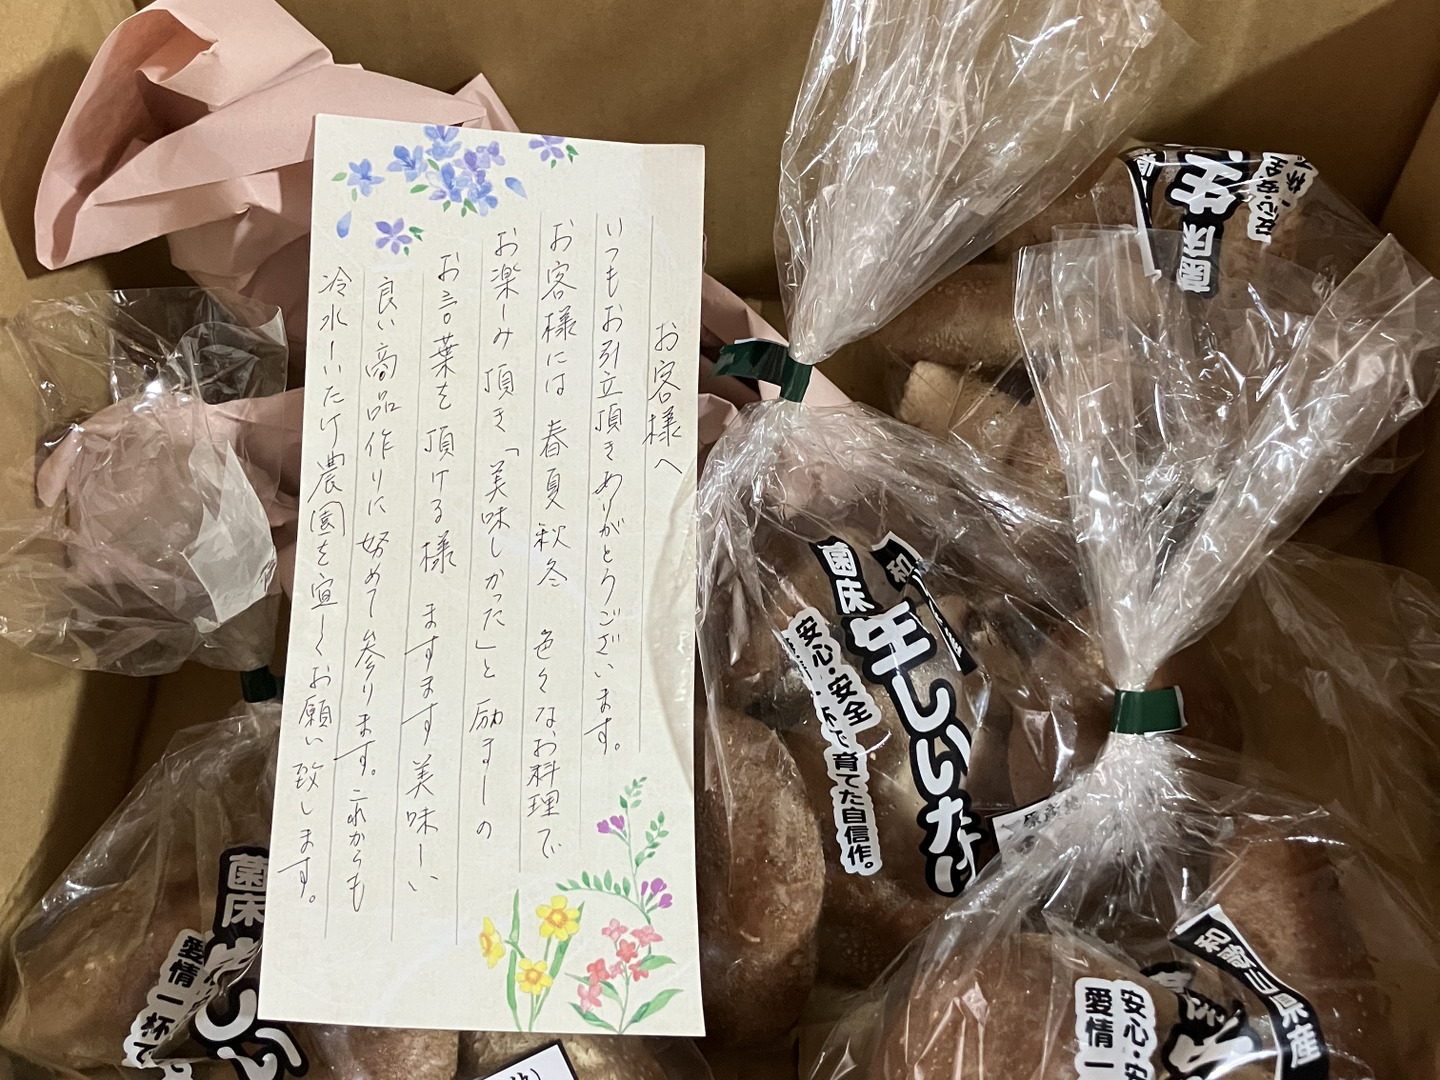 お客様へ
いつもお引立頂きありがとうございます。
お客様には 春夏秋冬 色々なお料理で
お楽しみ頂き「美味しかった」と励ましの
お言葉を頂ける様 ますます美味しい
良い商品作りに努めて参ります。これからも
冷水しいたけ農園を宜しくお願い致します。
菌床
生
安心・安全
菌床
生しいたけ
安心・安全
で育てた自信作。
菌床
愛情一杯で
和歌山県産
安心・安
愛情一